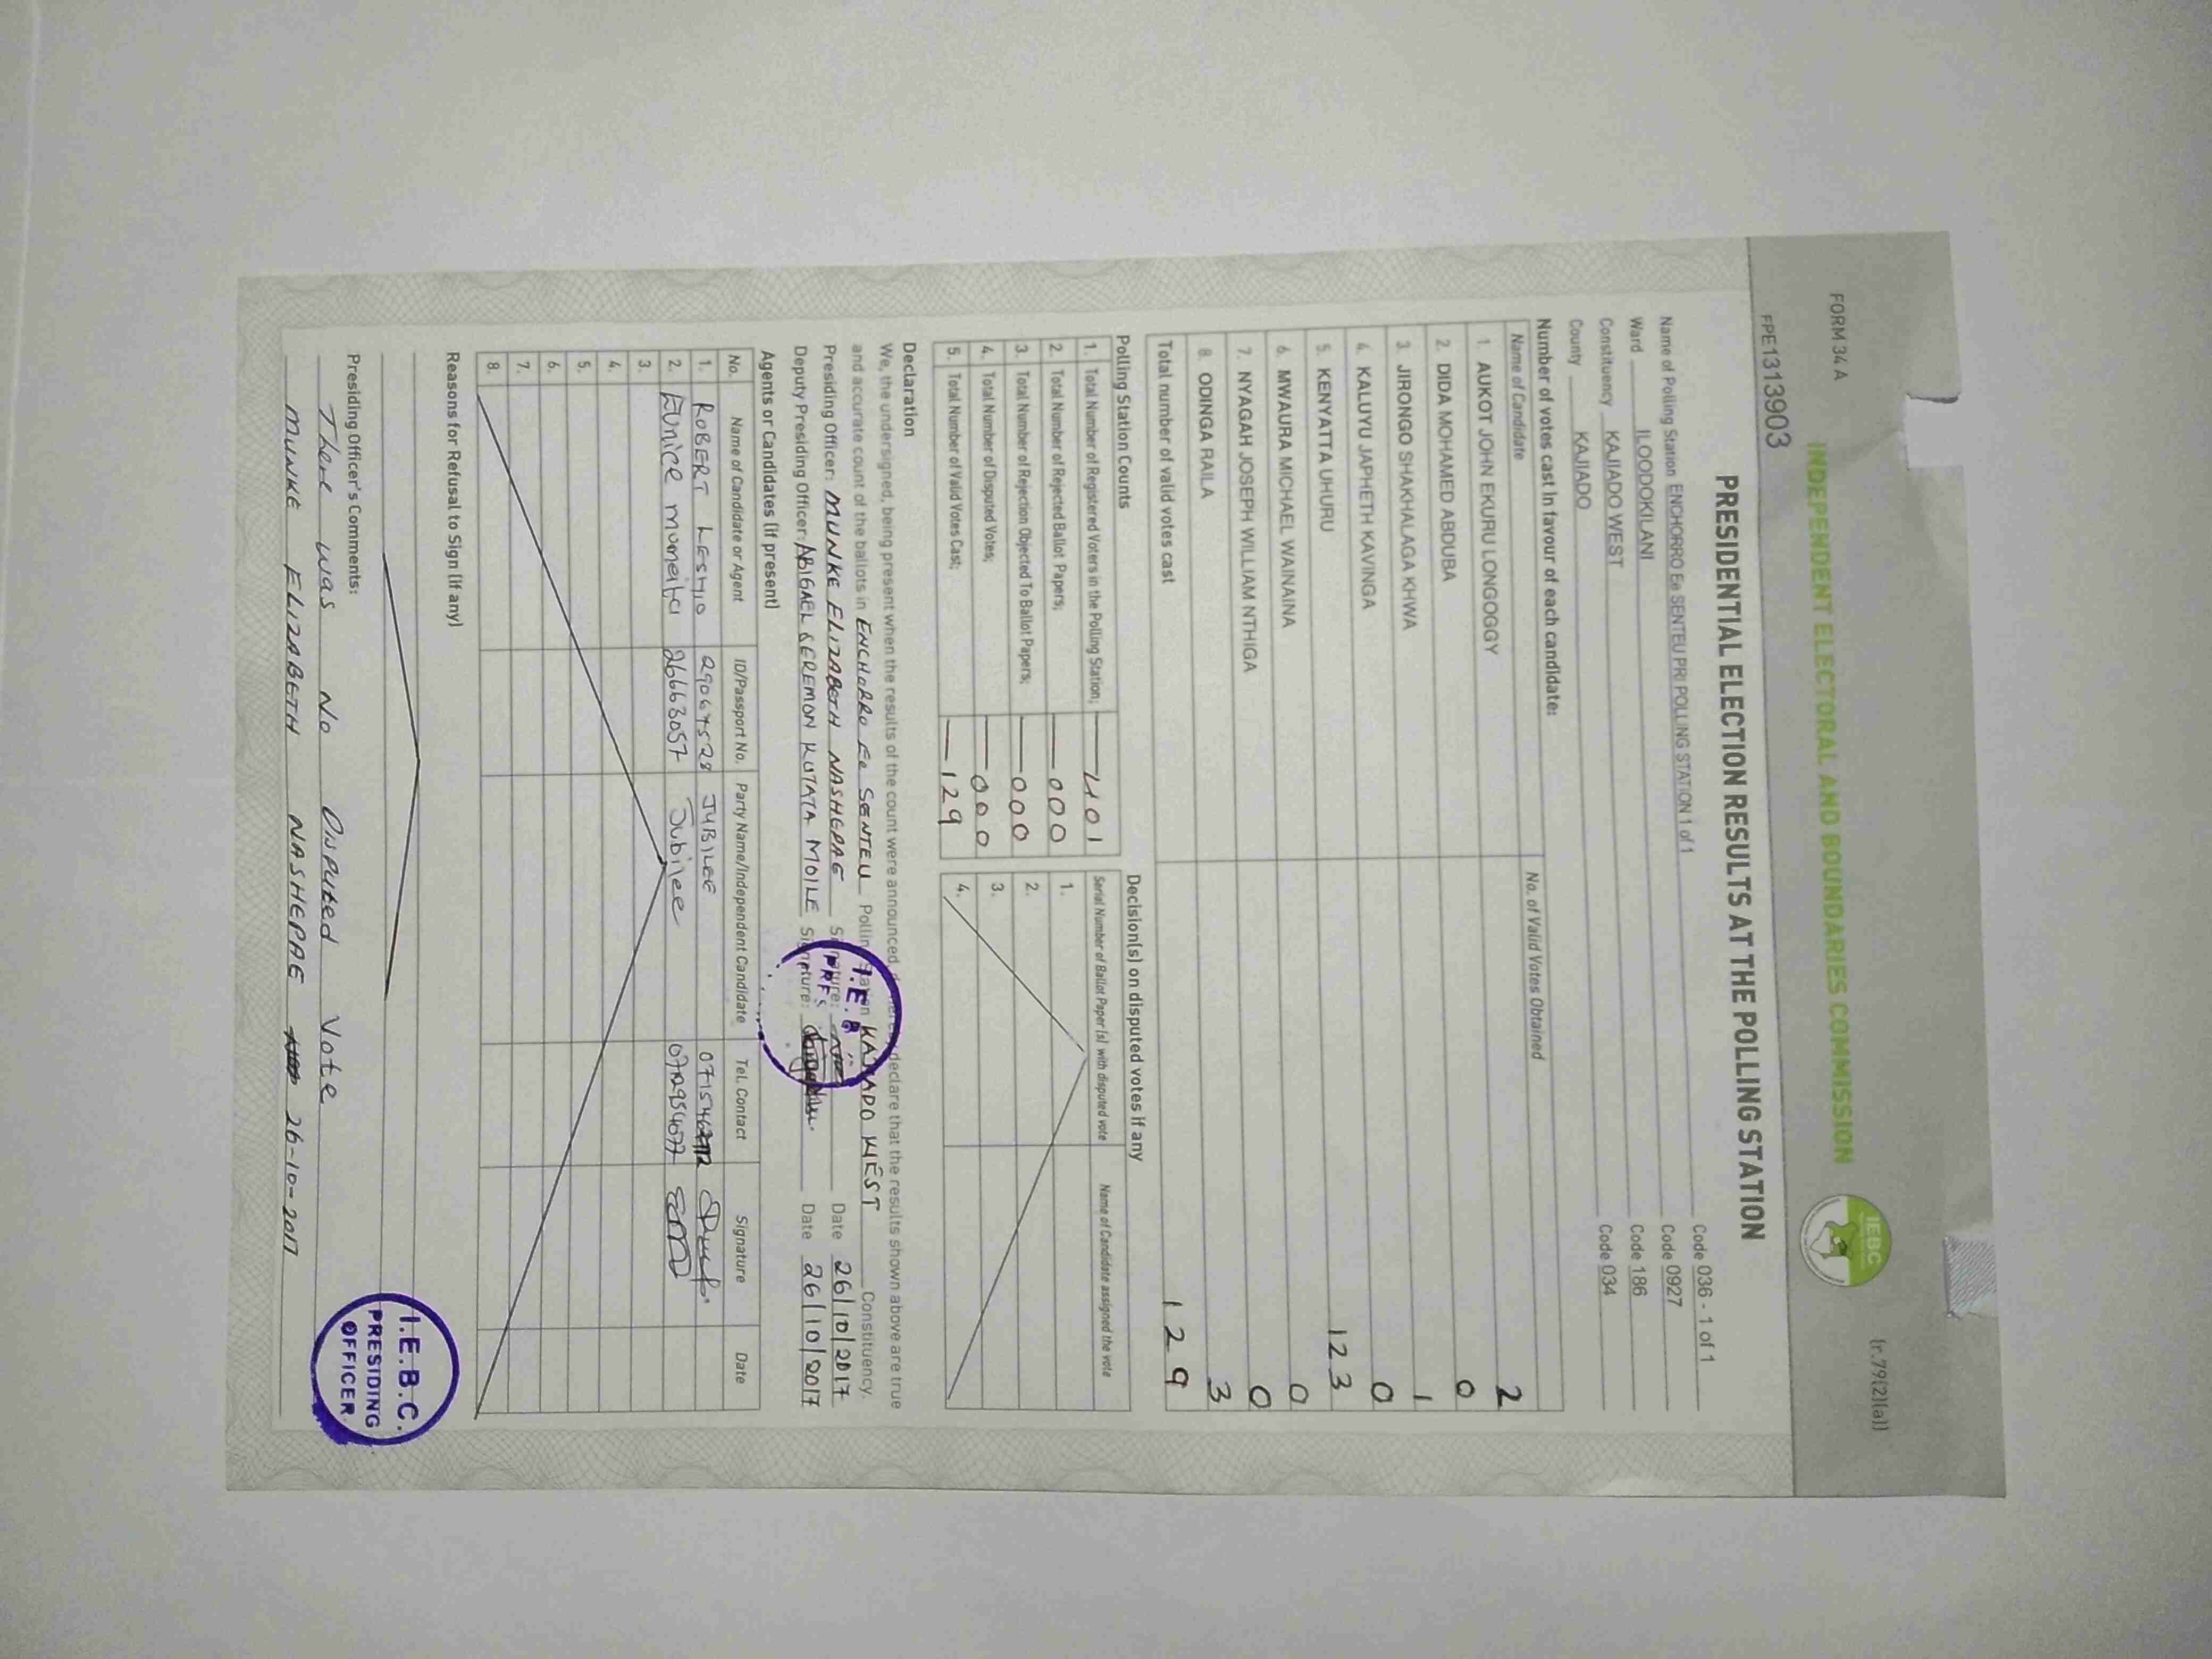 FORM 34 A
(r.79(2)(a))
INDEPENDENT ELECTORAL AND BOUNDARIES COMMISSION
IEBC
FPE1313903
PRESIDENTIAL ELECTION RESULTS AT THE POLLING STATION
Name of Polling Station ENCHORRO Ee SENTEU PRI POLLING STATION 1 of 1 Code 036 - 1 of 1
Ward ILOODOKILANI Code 0927
Constituency KAJIADO WEST Code 186
County KAJIADO Code 034
Number of votes cast in favour of each candidate:
Name of Candidate No. of Valid Votes Obtained
1. AUKOT JOHN EKURU LONGOGGY 2
2. DIDA MOHAMED ABDUBA 0
3. JIRONGO SHAKHALAGA KHWA 1
4. KALUYU JAPHETH KAVINGA 0
5. KENYATTA UHURU 123
6. MWAURA MICHAEL WAINAINA 0
7. NYAGAH JOSEPH WILLIAM NTHIGA 0
8. ODINGA RAILA 3
Total number of valid votes cast 129
Polling Station Counts
1. Total Number of Registered Voters in the Polling Station; 401
2. Total Number of Rejected Ballot Papers; 000
3. Total Number of Rejection Objected To Ballot Papers; 000
4. Total Number of Disputed Votes; 000
5. Total Number of Valid Votes Cast; 129
Decision(s) on disputed votes if any
Serial Number of Ballot Paper(s) with disputed vote Name of Candidate assigned the vote
1.
2.
3.
4.
Declaration
We, the undersigned, being present when the results of the count were announced, declare that the results shown above are true
and accurate count of the ballots in ENCHORRO Ee SENTEU Polling Station KAJIADO WEST Constituency.
Presiding Officer: MUNKE ELIZABETH NASHEPAE Signature: Date 26/10/2017
Deputy Presiding Officer: ABIGAEL SEREMON KUTATA MOILE Signature: Date 26/10/2017
I.E.B
PRES
Agents or Candidates (if present)
No. Name of Candidate or Agent ID/Passport No. Party Name/Independent Candidate Tel. Contact Signature Date
1. ROBERT 29067528 JUBILEE
2. Eunice 26663057 Jubilee
3.
4.
5.
6.
7.
8.
Reasons for Refusal to Sign (if any)
Presiding Officer's Comments:
There was No Disputed Vote
MUNKE ELIZABETH NASHEPAE 26-10-2017
I.E.B.C.
PRESIDING
OFFICER